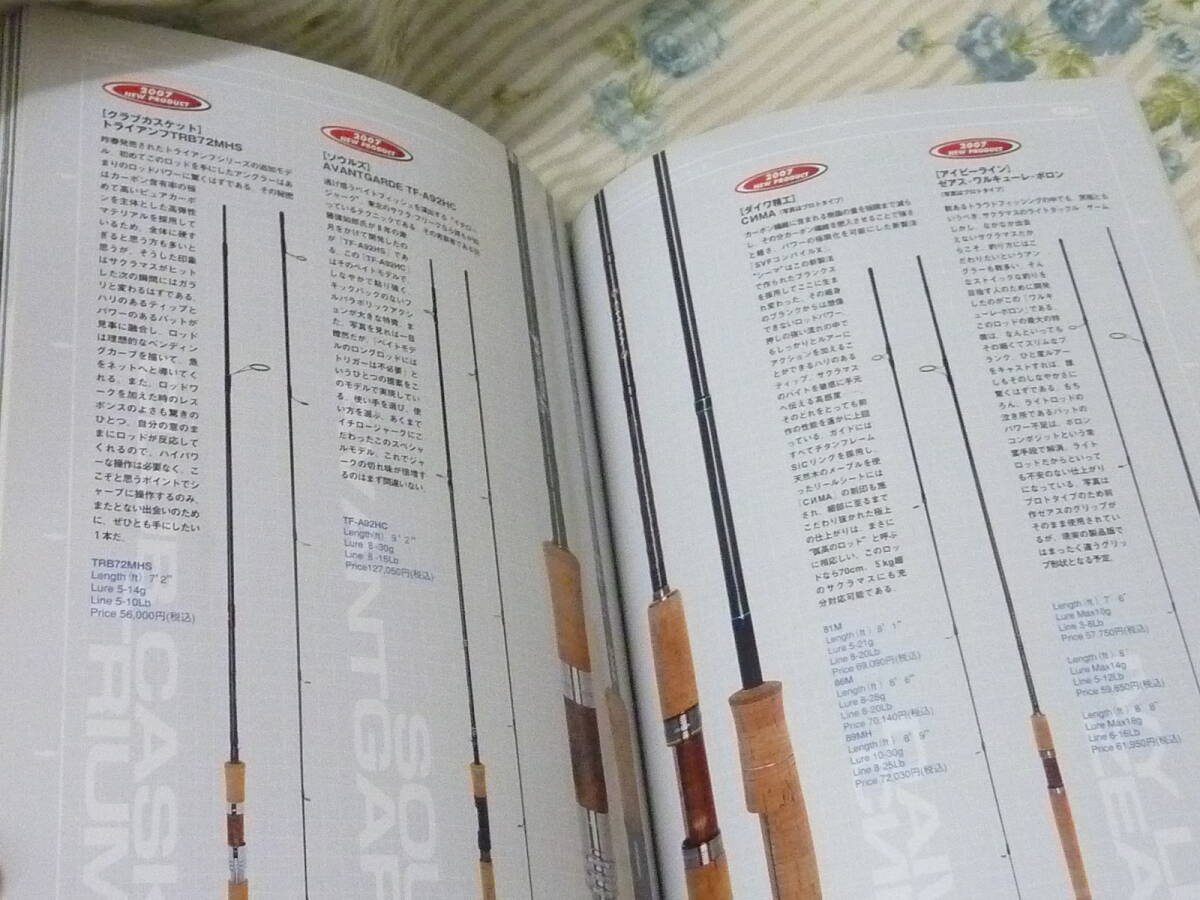 2007
NEW PRODUCT
[クラブカスケット]
トライアンフTRB72MHS
昨春発売されたトライアンフシリーズの追加モデ
ル。初めてこのロッドを手にしたアングラーはあ
まりのロッドパワーに驚くはずである。その秘密
はカーボン含有率の極
めて高いピュアカーボ
ンを主体とした高弾性
マテリアルを採用して
いるため、全体に硬す
ぎると思う方も多いと
思うが、そうした印象
はサクラマスがヒット
した次の瞬間にはガラ
リと変わるはずである。
ハリのあるティップと
パワーのあるバットが
見事に融合し、ロッド
は理想的なベンディン
グカーブを描いて、魚
をネットへと導いてく
れる。また、ロッドワ
ークを加えた時のレス
ポンスのよさも驚きの
ひとつ。自分の意のま
まにロッドが反応して
くれるので、ハイパワ
ーな操作は必要なく、こ
こぞと思うポイントでシ
ャープに操作するのみ。
またとない出会いのため
に、ぜひとも手にしたい
1本だ。
TRB72MHS
Length(ft) 7'2"
Lure 5-14g
Line 5-10Lb
Price 56,000円(税込)
2007
NEW PRODUCT
[ソウルズ]
AVANTGARDE TF-A92HC
月をかけて開発したの
が、「TF-A92HS」であ
る。この「TF-A92HC」
はそのベイトモデルで、
しなやかで粘り強く、
キックバックのないフ
ルパラボリックアクシ
ョンが大きな特徴。ま
た、写真を見れば一目
瞭然だが、「ベイトモデ
ルのロングロッドには
トリガーは不必要」と
いうひとつの提案をこ
のモデルで実現してい
る。使い手を選び、使
い方を選ぶ、あくまで
イチロージャークにこ
だわったこのスペシャ
ルモデル、これでジャ
ークの切れ味が倍増す
るのはまず間違いない
TF-A92HC
Length(ft) 9'2"
Lure 8-30g
Line 8-16Lb
Price127,050円(税込)
2007
NEW PRODUCT
[ダイワ精工]
CИMA (写真はプロトタイプ)
カーボン繊維に含まれる樹脂の量を極限まで減ら
し、その分カーボン繊維を密入させることで強さ
と軽さ、パワーの極限化を可能にした新製法
「SVFコンパイルX」。
"シーマ"はこの新製法
で作られたブランクス
を採用してここに生ま
れ変わった。その細身
のブランクからは想像
できないロッドパワー、
押しの強い流れの中で
もしっかりとルアーに
アクションを加えるこ
とができるハリのある
ティップ、サクラマス
のバイトを敏感に手元
へ伝える高感度、
そのどれをとっても前
作の性能を遥かに上回
っている。ガイドには
すべてチタンフレーム
SiCリングを採用し、
天然木のメープルを使
ったリールシートには
「CИMA」の刻印も施
され、細部に至るまで
こだわり抜かれた極上
の仕上がりは、まさに
"孤高のロッド"と呼ぶ
に相応しい。このロッ
ドなら70cm、5kg超
のサクラマスにも充
分対応可能である。
81M
Length(ft) 8'1"
Lure 5-21g
Line 8-20Lb
Price 69,090円(税込)
86M
Length(ft) 8'6"
Lure 8-28g
Line 8-20Lb
Price 70,140円(税込)
89MH
Length(ft) 8'9"
Lure 10-30g
Line 8-25Lb
Price 72,030円(税込)
2007
NEW PRODUCT
[アイビーライン]
ゼアス・ワルキューレ・ボロン
(写真はプロトタイプ)
数あるトラウトフィッシングの中でも、究極とも
いうべき、サクラマスのライトタックル・ゲーム。
しかし、なかなか出会
えないサクラマスだか
らこそ、釣り方にはこ
だわりたいというアン
グラーも数多い。そん
なストイックな釣りを
目指す人のために開発
したのがこの「ワルキ
ューレ・ボロン」である。
このロッドの最大の特
徴は、なんといっても
その細くてスリムなブ
ランク。ひと度ルアー
をキャストすれば、誰
しもそのしなやかさに
驚くはずである。もち
ろん、ライトロッドの
泣き所であるバットの
パワー不足は、ボロン
コンポジットという常
套手段で解消。ライト
ロッドだからといって
も不安のない仕上がり
になっている。写真は
プロトタイプのため前
作ゼアスのグリップが
そのまま使用されてい
るが、現実の製品版で
はまったく違うグリッ
プ形状となる予定。
Length(ft) 7'6"
Lure Max10g
Line 3-8Lb
Price 57,750円(税込)
Length(ft) 8'
Lure Max14g
Line 5-12Lb
Price 59,850円(税込)
Length(ft) 8'8"
Lure Max18g
Line 6-16Lb
Price 61,950円(税込)